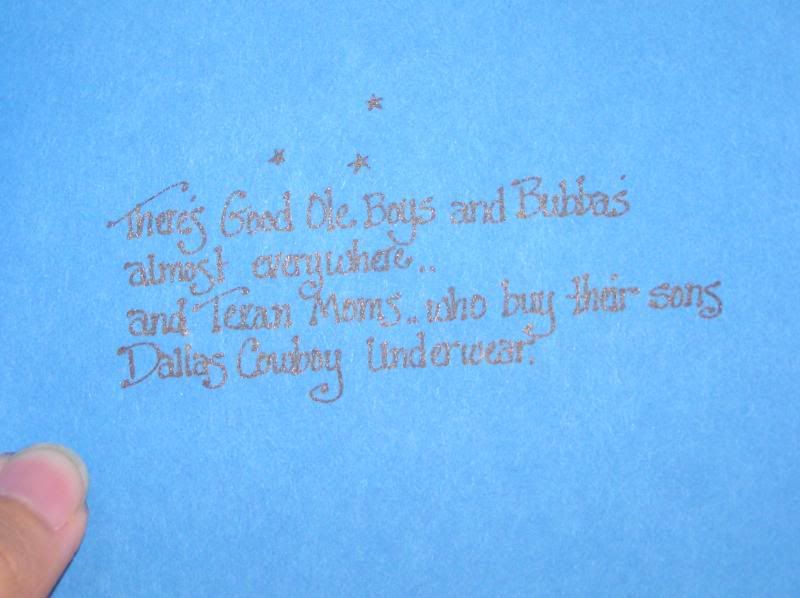 There's Good Ole Boys and Bubba's
almost everywhere..
and Texan Moms..who buy their sons
Dallas Cowboy Underwear!